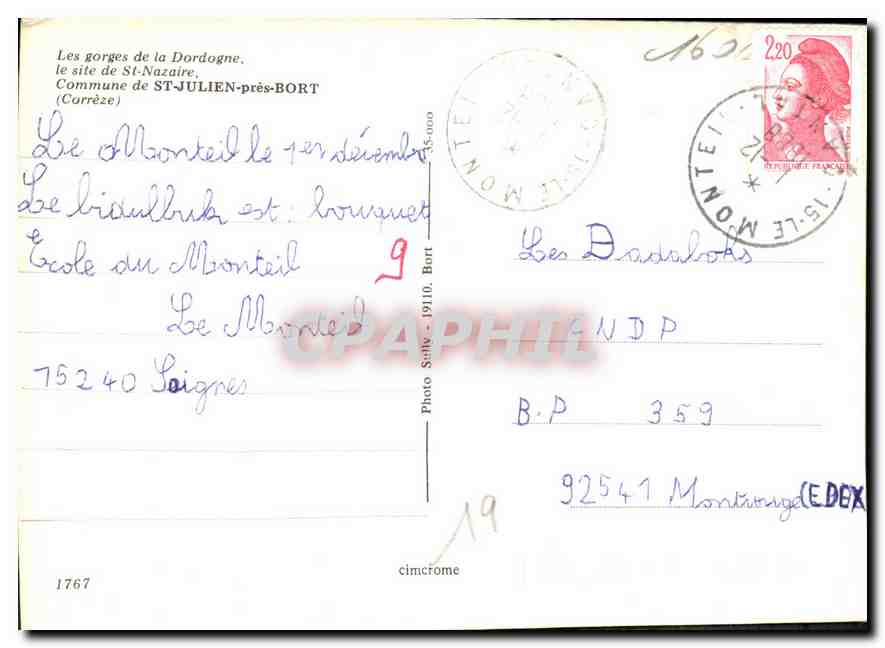 Les gorges de la Dordogne,
le site de St-Nazaire,
Commune de ST-JULIEN-près-BORT
(Corrèze)
Le Monteil le 1er décembre
Le bidulbuk est : bouquet
Ecole du Monteil
Le Monteil
15240 Saignes
9
1767
35-000
Photo Sully - 19110. Bort
cimcrome
19
2,20
REPUBLIQUE FRANÇAISE
15-LE MONTEIL
15-LE MONTEIL
Les Dadaloks
CNDP
B.P 359
92541 Montrouge CEDEX
CPAPHIL